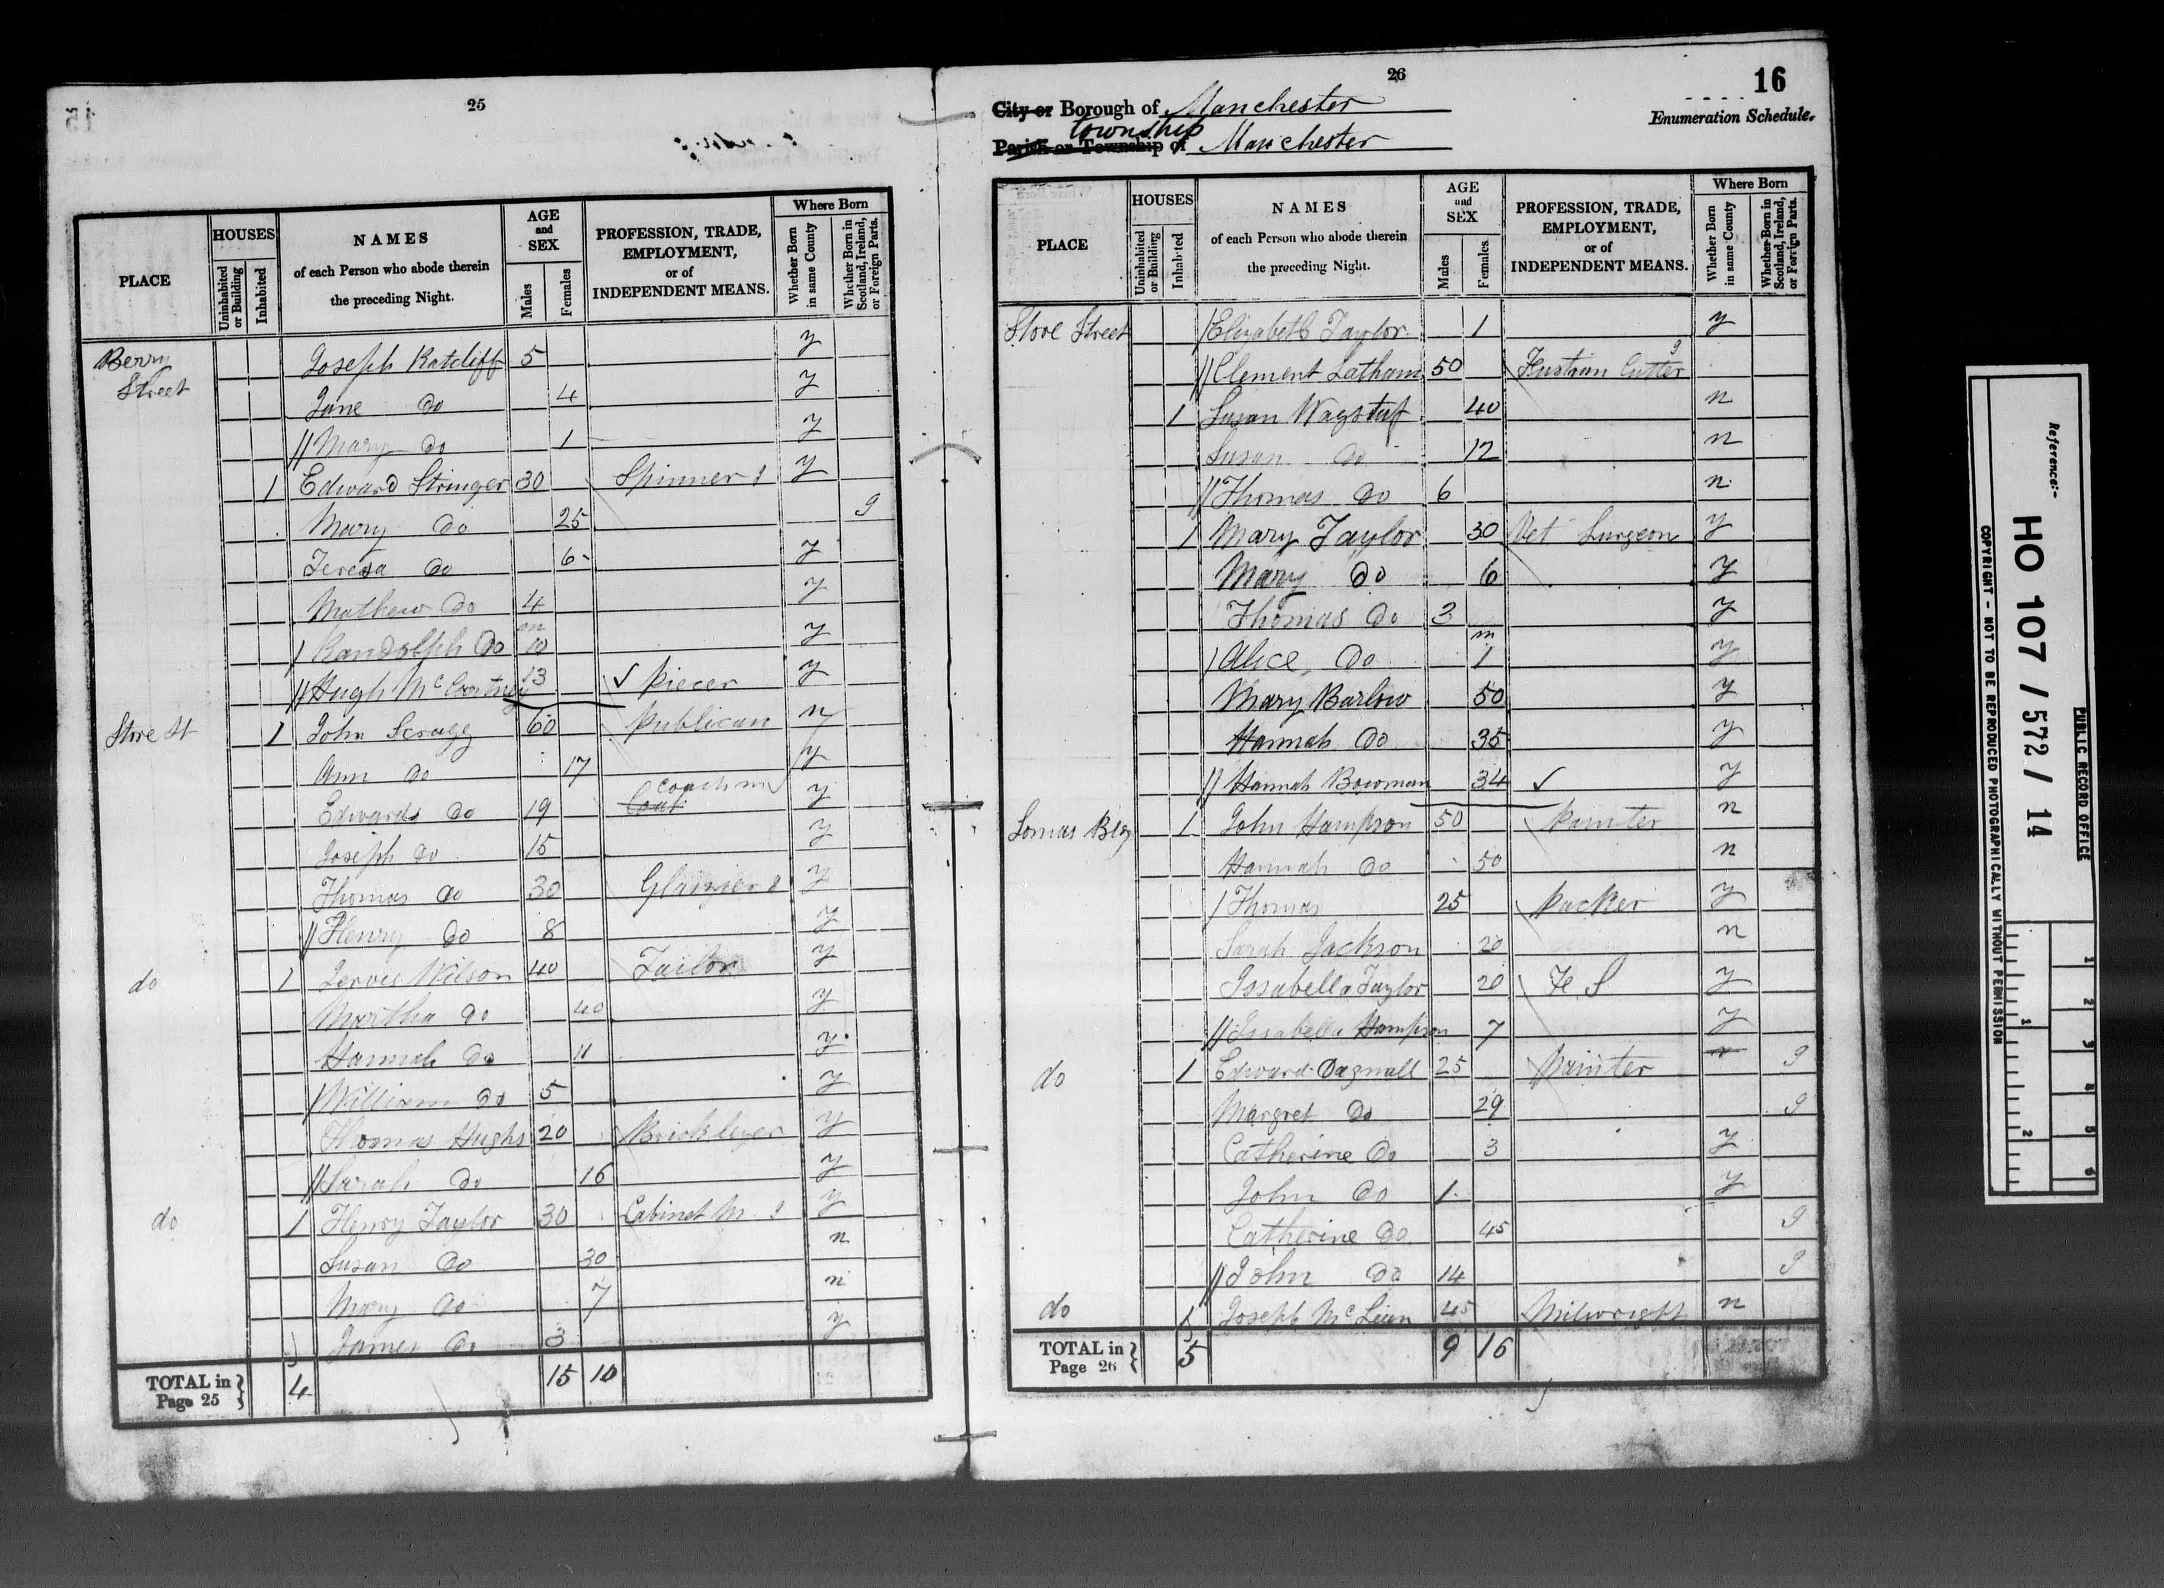 25
PLACE | HOUSES | Uninhabited or Building | Inhabited | NAMES of each Person who abode therein the preceding Night. | AGE and SEX | Males | Females | PROFESSION, TRADE, EMPLOYMENT, or of INDEPENDENT MEANS. | Where Born | Whether Born in same County | Whether Born in Scotland, Ireland, or Foreign Parts.
Berry Street Joseph Ratcliff 5 y
Jane do 4 y
// Mary do 1 y
1 Edward Stringer 30 Spinner y
Mary do 25 I
Teresa do 6 y
Mathew do 4 y
/ Randolph do 10 m y
// Hugh McCartney 13 ✓ Piecer y
Store St 1 John Scragg 60 Publican n
Ann do 17 y
Edward do 19 coach m y
Joseph do 15 y
Thomas do 30 Glaizier y
// Henry do 8 y
do 1 Jervis Wilson 40 Tailor y
Martha do 40 y
Hannah do 11 y
/ William do 5 y
Thomas Hughs 20 Bricklayer y
// Sarah do 16 y
do 1 Henry Taylor 30 Cabinet M. y
Susan do 30 n
Mary do 7 n
James do 3 y
TOTAL in Page 25 } 4 15 10
26
16
City or Borough of Manchester
Enumeration Schedule.
Parish or Township of township Manchester
PLACE | HOUSES | Uninhabited or Building | Inhabited | NAMES of each Person who abode therein the preceding Night. | AGE and SEX | Males | Females | PROFESSION, TRADE, EMPLOYMENT, or of INDEPENDENT MEANS. | Where Born | Whether Born in same County | Whether Born in Scotland, Ireland, or Foreign Parts.
Store Street / Elizabeth Taylor 1 y
// Clement Latham 50 Fustian Cutter
1 Susan Wagstaf 40 n
Susan do 12 n
// Thomas do 6 n
1 Mary Taylor 30 Vet Surgeon y
Mary do 6 y
Thomas do 3 y
/ Alice do 1 m y
Mary Barlow 50 y
Hannah do 35 y
// Hannah Bowman 34 ✓ y
Lomas Blg 1 John Hampson 50 Painter n
Hannah do 50 n
/ Thomas 25 Packer y
Sarah Jackson 20 n
Issabella Taylor 20 Fe S y
// Issabella Hampson 7 y
do 1 Edward Dagnall 25 Painter I
Margret do 29 I
Catherine do 3 y
John do 1 y
Catherine do 45 I
// John do 14 I
do 1 Joseph McLien 45 Milwright n
TOTAL in Page 26 } 5 9 16
Reference:-
HO 107 / 572 / 14
PUBLIC RECORD OFFICE
COPYRIGHT - NOT TO BE REPRODUCED PHOTOGRAPHICALLY WITHOUT PERMISSION
1 2 3 4 5 6
1 2